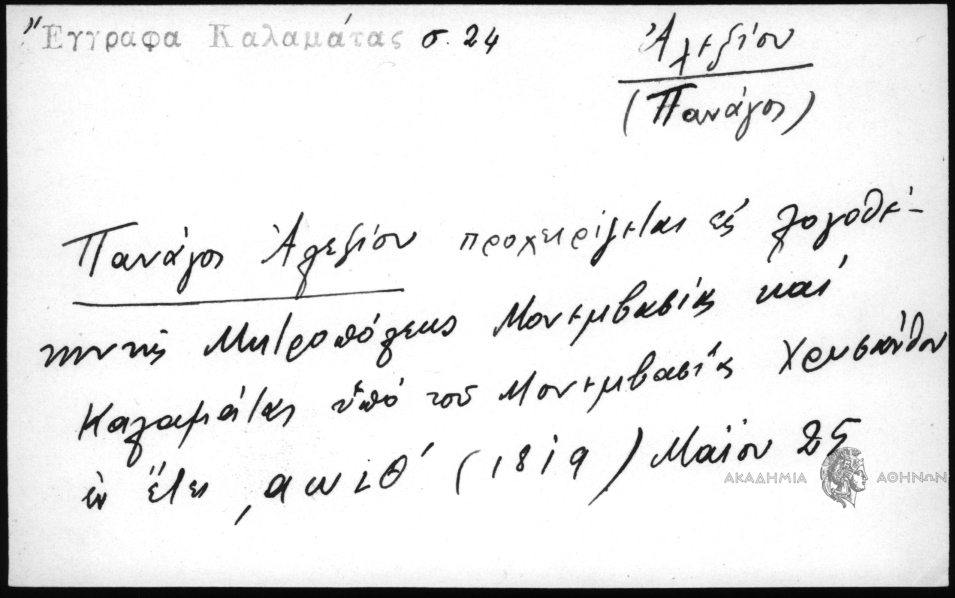 Ἔγγραφα Καλαμάτας σ. 24
Ἀλεξίου
(Πανάγος)
Πανάγος Ἀλεξίου προχειρίζεται εἰς λογοθέ-
την τῆς Μητροπόλεως Μονεμβασίας καὶ
Καλαμάτας ὑπὸ τοῦ Μονεμβασίας Χρυσάνθου
ἐν ἔτει ͵αωιθ΄ (1819) Μαΐου 25
ΑΚΑΔΗΜΙΑ ΑΘΗΝΩΝ